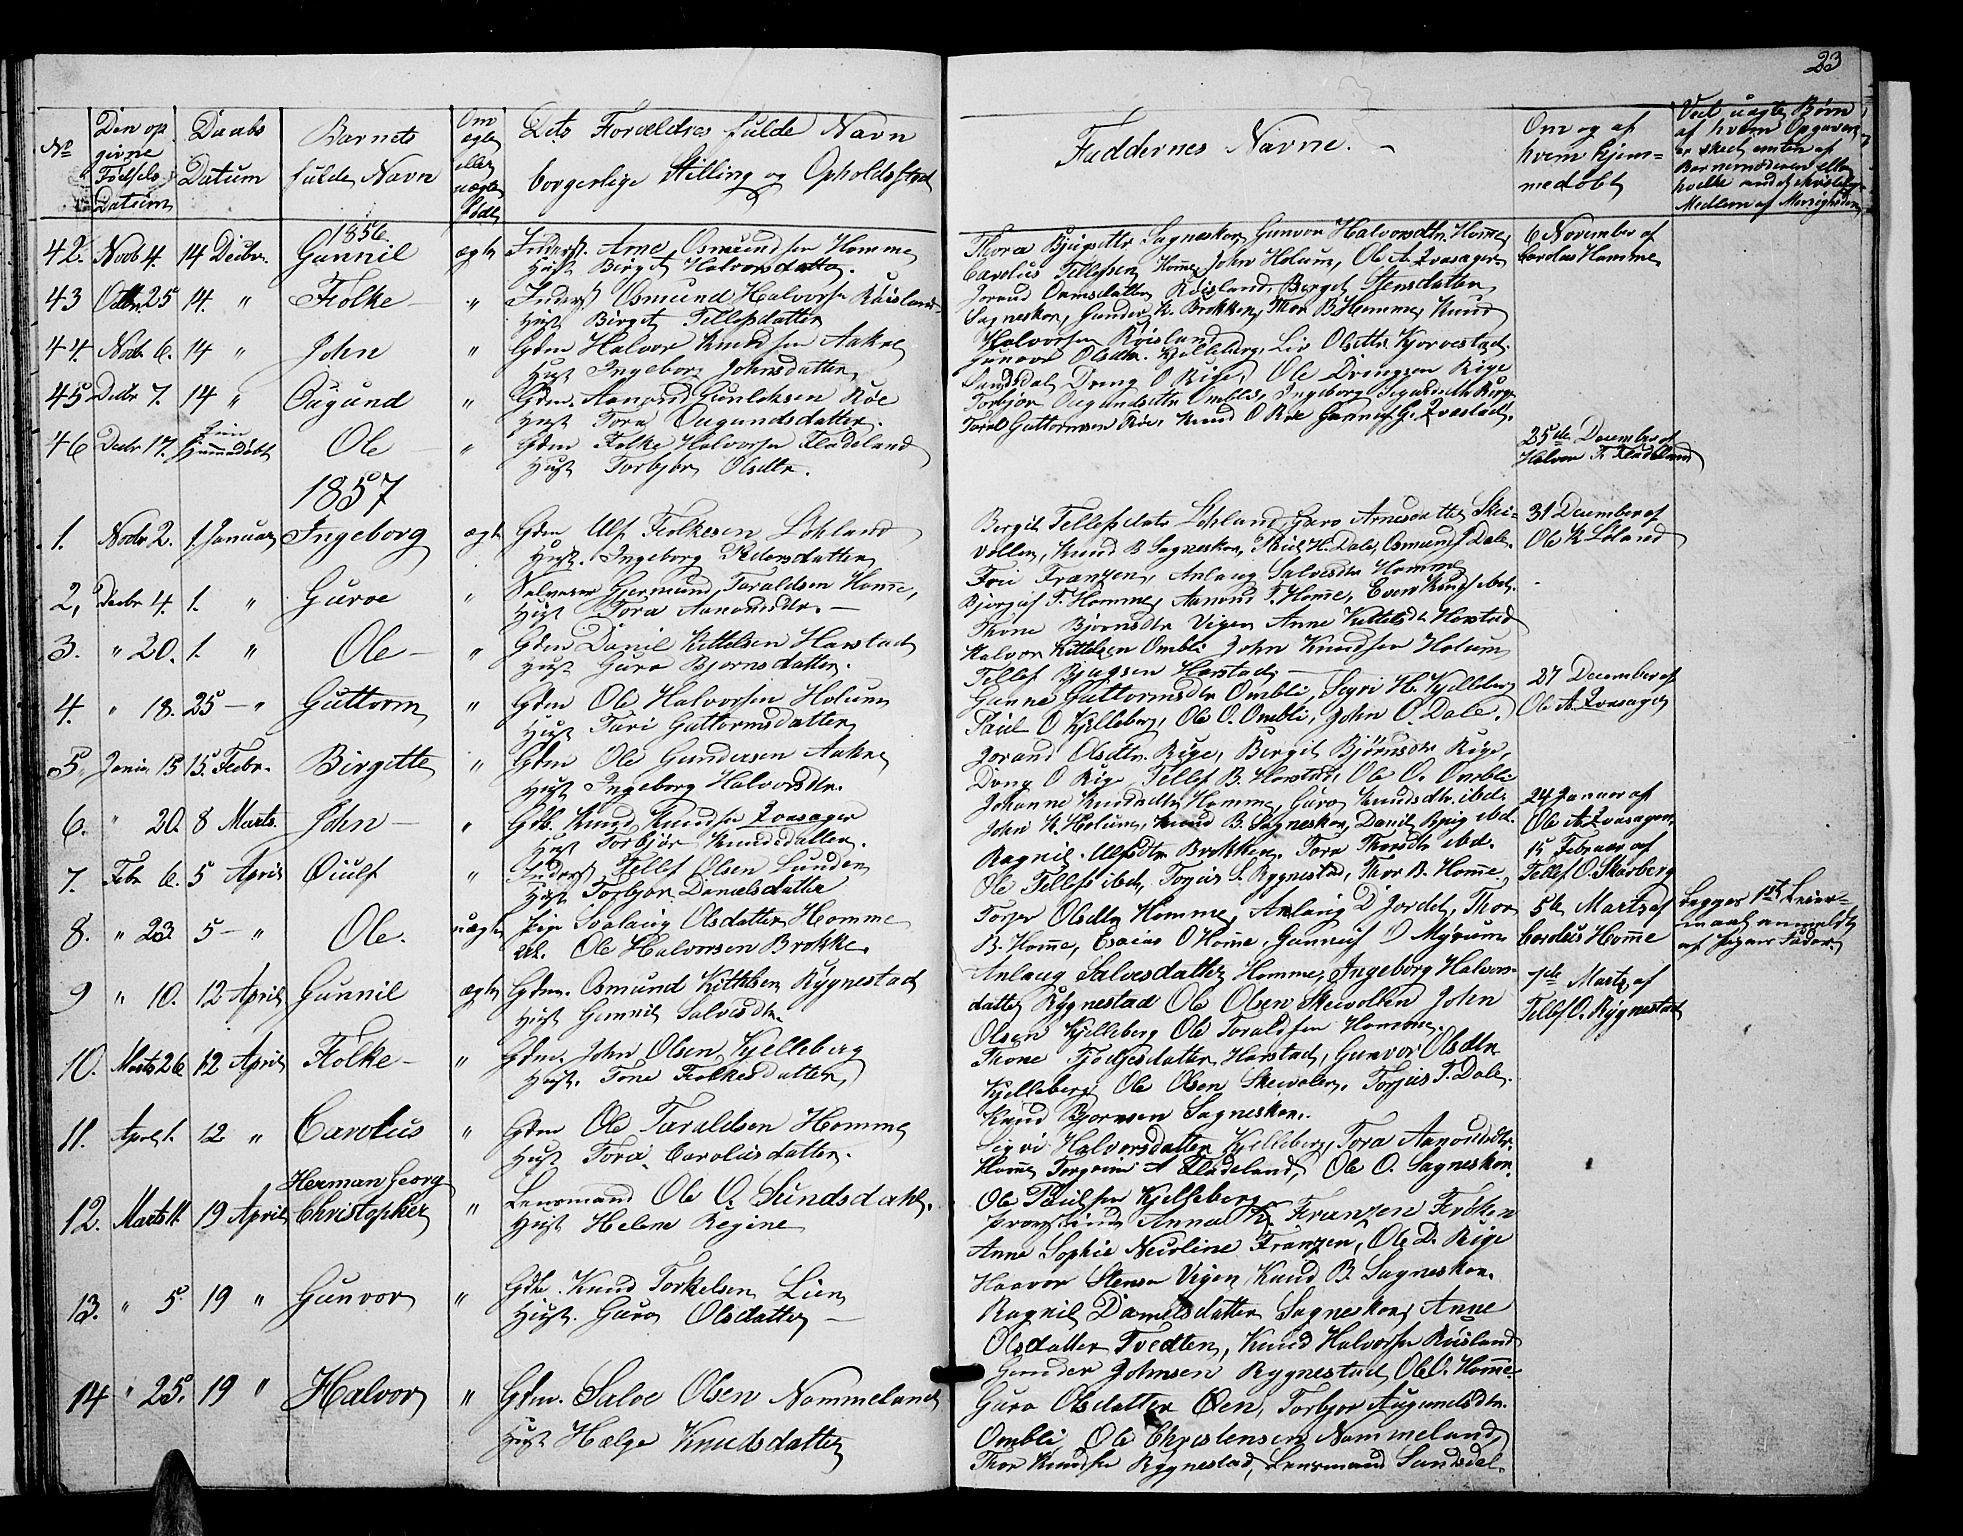 23
No
Den op
givne
Fødsels
Datum
Daabs
Datum
Barnets
fulde Navn
Om
ægte
eller
uægte
født
Dets Forældres fulde Navn
borgerlige Stilling og Opholdssted
Faddernes Navne. -
Om og af
hvem hjem=
medøbt
Ved uægte Børn
af hvem Opgaven
er skeet enten af
Barnemoderen eller
hvilke andet
Medlem af Menigheden
1856
42. Novb 4. 14 Decbr. Gunnil ægte Inderst. Arne Osmundsen Homme
Hust Birgit Halvorsdatter.
Thora Sagneskar, Gunvor Halvorsdtr. Homme,
Carolus Tellefsen Homme, John Holum, Ole A. Zvasager
6 November af
Carolus Homme
43 Octbr. 25 14. " Folke - " Inderst Osmund Halvorsen Røisland
Hust Birgit Tellefsdatter
Jorand Ormsdatter Røisland, Berget Stensdatter
Sagneskar, Gunder K. Brokken, Thor B Homme, Knud
Halvorsen Røisland
44. Novbr 6. 14 " John " Gdm Halvor Knudsen Aakre
Hust Ingeborg Johnsdatter
Gunvor Olsdtr. Kjelleberg, Liv Olsdtr Kjørvestad
Sundsdal, Dreng O Rige, Ole Drengsen Rige
45 Decbr 7. 14 " Øugund " Gdm. Aanond Gunleksen Røe
Hust Tora Øugundsdatter.
Torbjør Øugundsdtr Ombli, Ingeborg
Taral Guttormsen Røe, Knud O Røe Gunnuf G. Zvestad.
46 Decbr 17. Hjemmedøbt Ole " Gdm Folke Halvorsen Fladeland
Hust Torbjør Olsdtr.
25de December af
Halvor F. Fladeland
1857
1. Novbr 2. 1. Januar Ingeborg ægte Gdm Ulf Folkesen Løhland
Hust. Ingeborg Pedersdatter
Bergit Tellefsdatr Løhland, Guro Arnesdatter Skei=
vollen, Knud B Sagneskar, Paul H. Dale, Osmund J Dale.
31 December af
Ole K Løland
2, Decbr 4. 1. " Guroe " Gjermund Taraldsen Homme,
Hust Tora Aanondsdtr. -
Frue Franzen, Anlaug Salvesdtr Homme
Bjørguf T. Homme, Aanond T. Homme, Even Knudsen ibid.
3. " 20. 1. " Ole - " Gdm Daniel Kittelsen Harstad
Hust Guro Bjørnsdatter.
Thone Bjørnsdtr Vigen Anne Kittelsdtr Harstad
Halvor Kittelsen Ombli John Knudsen Holum
Tellef Bjugsen Harstad
4. " 18. 25 - " Guttorm " Gdm Ole Halvorsen Holum
Hust Turi Guttormsdatter
Gunne Guttormsdtr Ombli, Sigri H. Kjelleberg
Paul O Kjelleberg, Ole O. Ombli, John O. Dale.
27 December af
Ole A. Zvasager
5. Janu. 15 15. Febr. Birgitte " Gdm Ole Gundersen Aakre
Hust Ingeborg Halvorsdtr.
Jorand Olsdtr. Rige, Bergit Bjørnsdtr Rige,
Dreng O Rige Tellef B. Harstad, Ole O. Ombli
6. " 20. 8 Marts. John - " Gdb. Knud Knudsen Zvasager
Hust Torbjør Knudsdatter.
Johanne Knudsdtr Homme, Guro Knudsdtr. ibd.
John K. Holum, Knud B. Sagneskar, Daniel Bjug ibd.
24 Januar af
Ole A. Zvasager
7. Febr 6. 5 April Øiulf " Inderst Tellef Olsen Lunden
Hust Torbjør Danielsdatter
Ragnil Ulfsdtr Brokken. Tora Thorsdtr ibd.
Ole Tellefs ibd, Torjus S. Rygnestad, Thor B. Homme
15 Februar af
Tellef O. Skarberg
8. " 23. 5 - " Ole. uægte Pige Svalaug Olsdatter Homme
Ole Halvorsen Brokke.
Torgr Olsdtr Homme, Anlaug D Jordet, Thor
B. Homme, Esaias O Homme, Gunnuf O Myrum
5te Marts af
Carolus Homme
Begges 1ste Leier=
maal anmeldt
af Pigens Fader.
9 " 10. 12 April Gunnil ægte Gdm. Osmund Kittelsen Rygnestad
Hust Gunnil Salvesdtr.
Anlaug Salvesdatter Homme, Ingeborg Halvors=
datter Rygnestad Ole Olsen Skeivollen John
Olsen Kjelleberg Ole Taraldsen Homme.
7de Marts af
Tellef O. Rygnestad
10. Marts 26 12 April Folke - " Gdm. John Olsen Kjelleberg
Hust. Tone Folkesdatter
Thone Harstad, Gunvor Olsdtr
Kjelleberg Ole Olsen Skeivolen, Torjus T. Dale.
Knud Bjørnsen Sagneskar.
11. April 1. 12 " Carolus " Gdm Ole Taraldsen Homme
Hust Tora Carolusdatter.
Sigri Halvorsdatter Kjelleberg, Tora Aanondsdtr.
Homme Torgrim A Fladeland, Ole O. Sagneskar.
Ole Paulsen Kjelleberg
12. Marts 11. 19 April Herman Georg
Christopher " Lensmand Ole O. Sundsdahl.
Hust Helene Regine
Anna Franzen Frøken
Anne Sophie Nicoline Franzen, Ole D. Rige
Haavor Stensen Vigen, Knud B. Sagneskar.
13. " 5 19 " Gunvor " Gdb. Knud Torkelsen Lien
Hust. Guro Olsdatter -
Ragnil Danielsdatter Sagneskar, Anne
Olsdatter Tvedten, Knud Halvorsen Røisland
Gunder Johnsen Rygnestad, Ole O. Homme
14 " 25. 19 " Halvor " Gdm. Salve Olsen Nommeland
Hust Hælge Knudsdatter
Guro Olsdatter Øen, Torbjør Augundsdtr.
Ombli, Ole Christensen Nommeland,
Thor Knudsen Rygnestad, Lensmand Sundsdal.